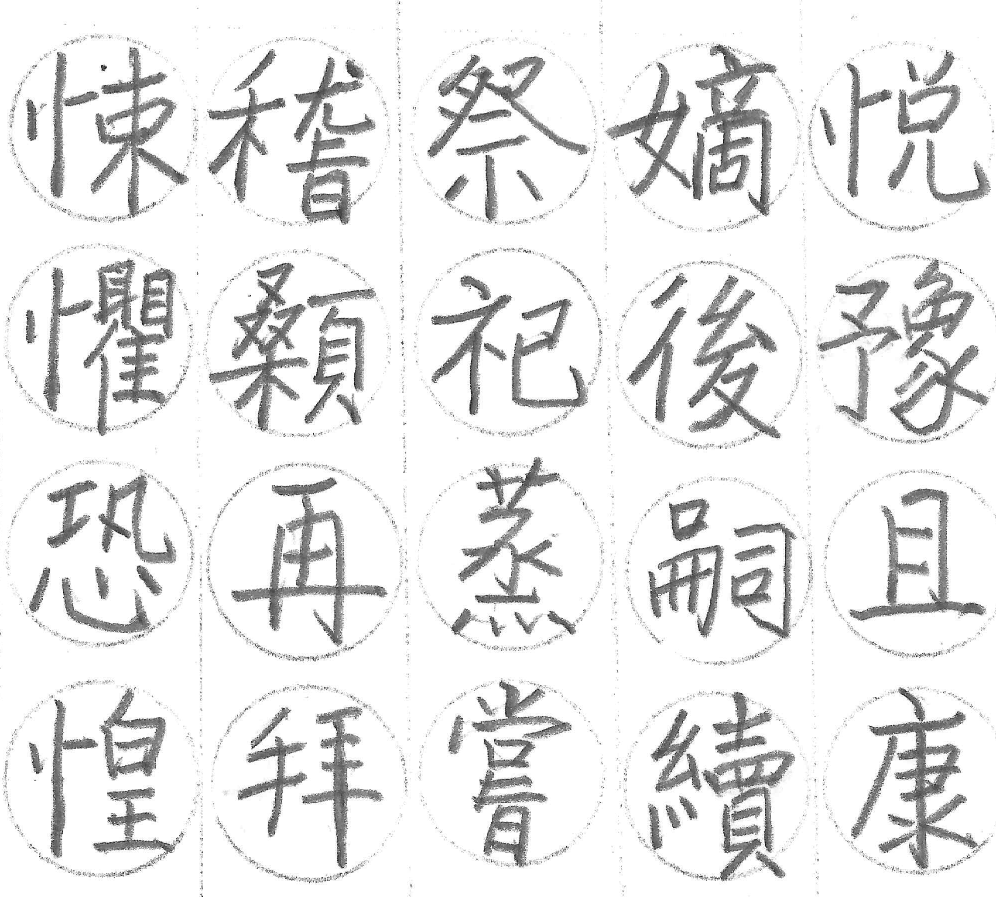 悦豫且康
嫡後嗣續
祭祀蒸嘗
稽顙再拜
悚懼恐惶